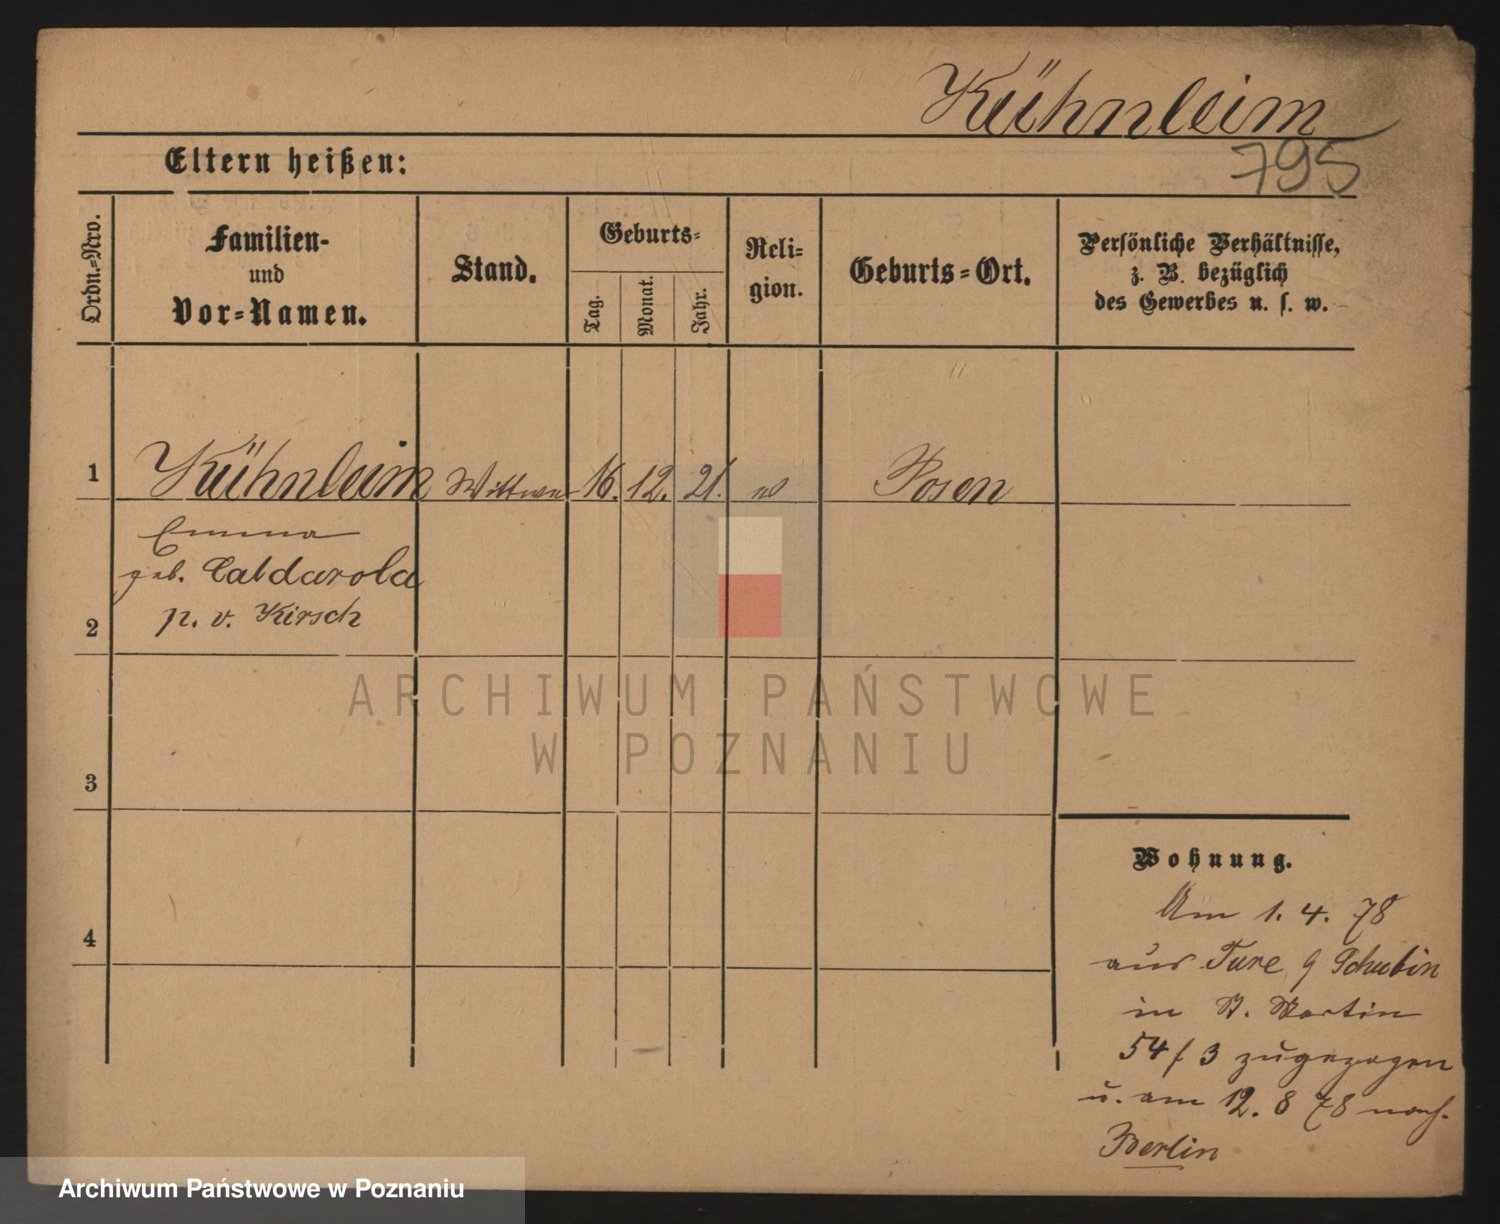 Kühnleim
795
Eltern heißen:
Ordn.=Nro.
Familien-
und
Vor=Namen.
Stand.
Geburts=
Tag.
Monat.
Jahr.
Reli=
gion.
Geburts=Ort.
Persönliche Verhältnisse,
z. B. bezüglich
des Gewerbes u. s. w.
1 Kühnleim Wittwe 16. 12. 21. Posen
Emma
geb. Caldarola
2 p. v. Kirsch
ARCHIWUM PAŃSTWOWE
W POZNANIU
3
Wohnung.
4
Am 1. 4. 78
aus Ture Schubin
in St. Martin
54/3 zugezogen
u. am 12. 8 78 nach
Berlin
Archiwum Państwowe w Poznaniu